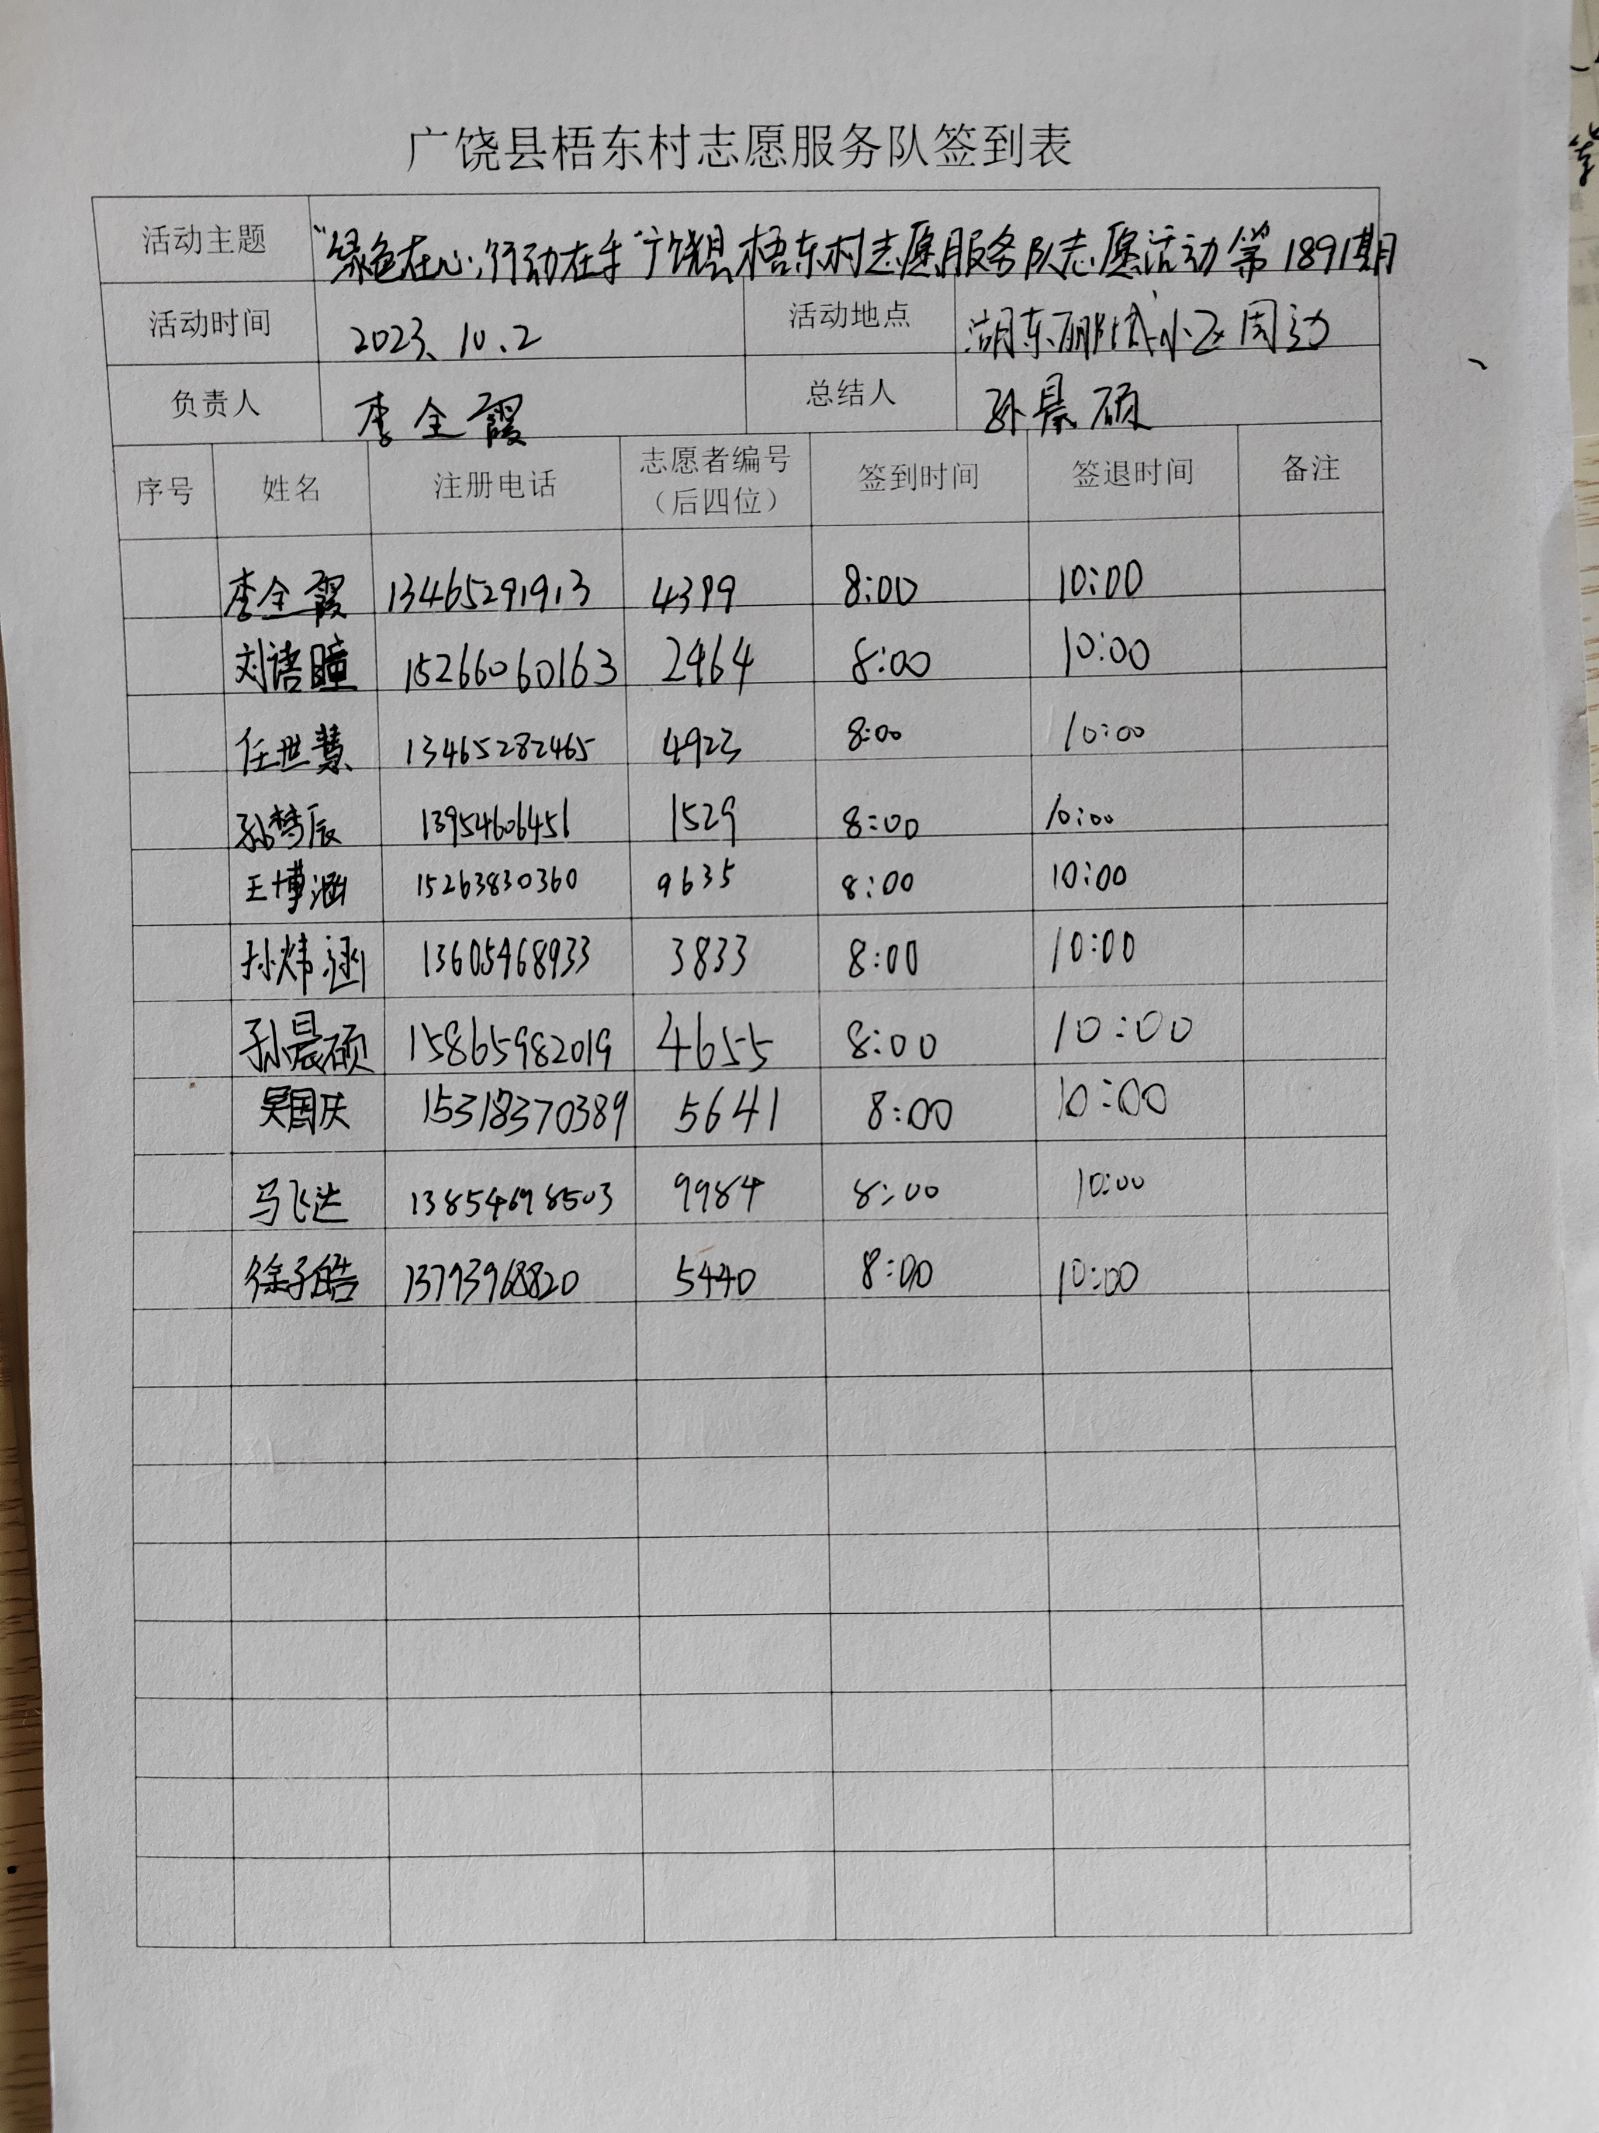 广饶县梧东村志愿服务队签到表
活动主题 “绿色在心,行动在手”广饶县梧东村志愿服务队志愿活动第1891期
活动时间 2023.10.2 活动地点 湖东丽城小区周边
负责人 李全霞 总结人 孙晨硕
序号 姓名 注册电话 志愿者编号 签到时间 签退时间 备注
（后四位）
李全霞 13465291913 4399 8:00 10:00
刘语瞳 15266060163 2464 8:00 10:00
任世慧 13465282465 4923 8:00 10:00
孙梦辰 13954606451 1529 8:00 10:00
王博涵 15263830360 9635 8:00 10:00
孙炜涵 13605468933 3833 8:00 10:00
孙晨硕 15865982019 4655 8:00 10:00
吴国庆 15318370389 5641 8:00 10:00
马飞达 13854698503 9984 8:00 10:00
徐子皓 13793968820 5440 8:00 10:00